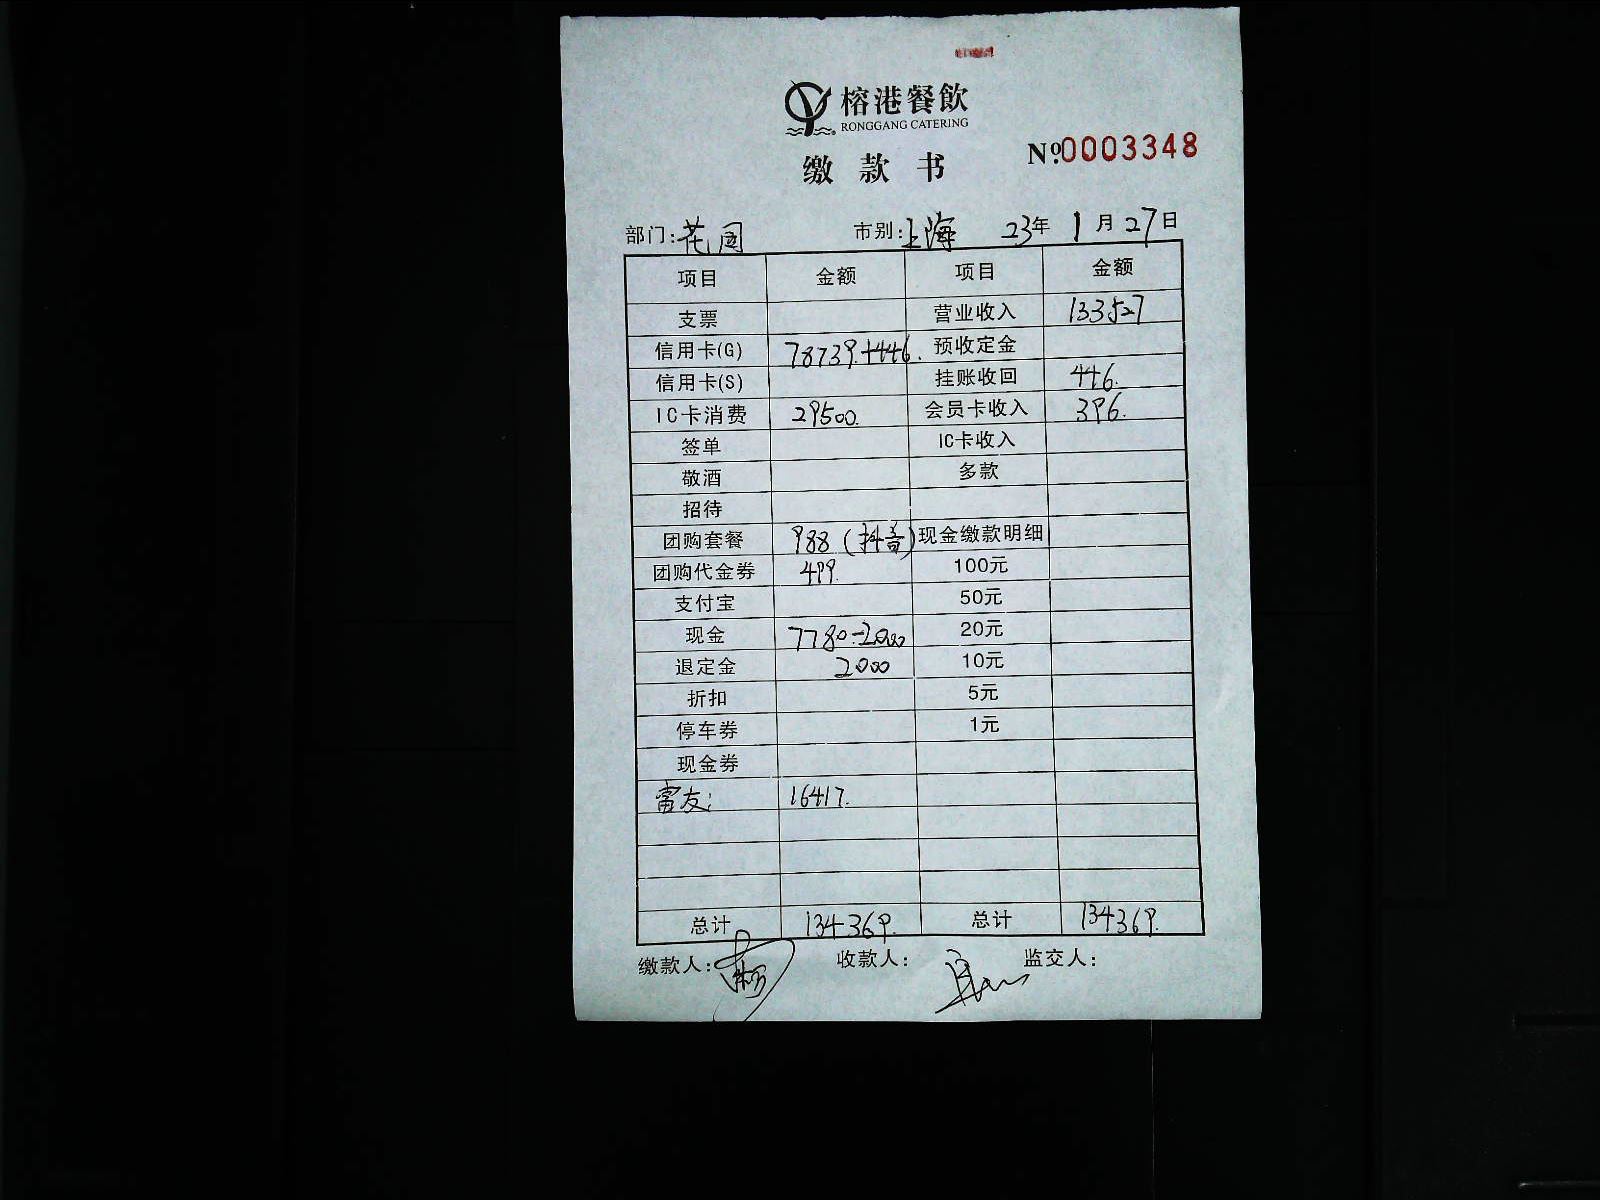 榕港餐飲
RONGGANG CATERING
缴款书 №0003348
部门:花园 市别:上海 23年1月27日
项目 金额 项目 金额
支票 营业收入 133527
信用卡(G) 78739.+446. 预收定金
信用卡(S) 挂账收回 446.
IC卡消费 29500. 会员卡收入 396.
签单 IC卡收入
敬酒 多款
招待
团购套餐 988(抖音) 现金缴款明细
团购代金券 499. 100元
支付宝 50元
现金 7780-2000 20元
退定金 2000 10元
折扣 5元
停车券 1元
现金券
富友: 16417.
总计 134369. 总计 134369.
缴款人: 收款人: 监交人: